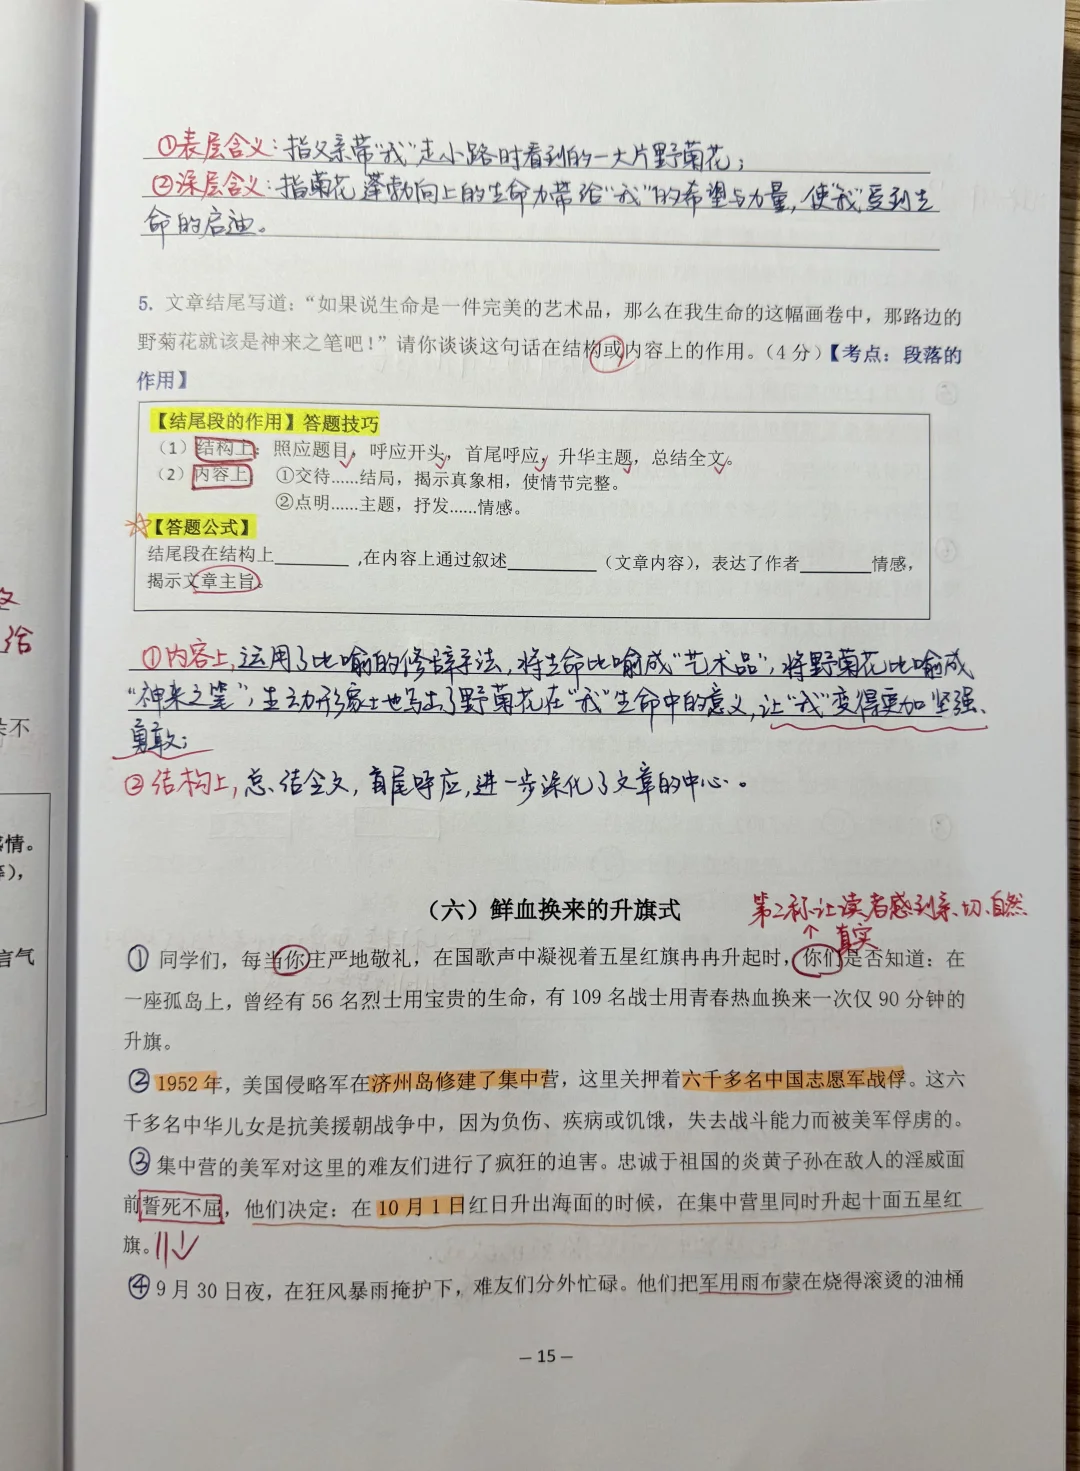 ①表层含义：指父亲带“我”走小路时看到的一大片野菊花；
②深层含义：指菊花蓬勃向上的生命力带给“我”的希望与力量，使“我”受到生
命的启迪。
5. 文章结尾写道：“如果说生命是一件完美的艺术品，那么在我生命的这幅画卷中，那路边的
野菊花就该是神来之笔吧！”请你谈谈这句话在结构或内容上的作用。（4 分）【考点：段落的
作用】
【结尾段的作用】答题技巧
（1）结构上：照应题目，呼应开头，首尾呼应，升华主题，总结全文。
（2）内容上 ①交待......结局，揭示真象相，使情节完整。
②点明......主题，抒发......情感。
【答题公式】
结尾段在结构上________ ,在内容上通过叙述__________（文章内容），表达了作者________情感，
揭示文章主旨。
①内容上，运用了比喻的修辞手法，将生命比喻成“艺术品”，将野菊花比喻成
“神来之笔”，生动形象土地写出了野菊花在“我”生命中的意义，让“我”变得更加坚强、
勇敢；
②结构上，总结全文，首尾呼应，进一步深化了文章的中心。
（六）鲜血换来的升旗式
第二称让读者感到亲切、自然
真实
① 同学们，每当你庄严地敬礼，在国歌声中凝视着五星红旗冉冉升起时，你们是否知道：在
一座孤岛上，曾经有 56 名烈士用宝贵的生命，有 109 名战士用青春热血换来一次仅 90 分钟的
升旗。
② 1952 年，美国侵略军在济州岛修建了集中营，这里关押着六千多名中国志愿军战俘。这六
千多名中华儿女是抗美援朝战争中，因为负伤、疾病或饥饿，失去战斗能力而被美军俘虏的。
③ 集中营的美军对这里的难友们进行了疯狂的迫害。忠诚于祖国的炎黄子孙在敌人的淫威面
前誓死不屈，他们决定：在 10 月 1 日红日升出海面的时候，在集中营里同时升起十面五星红
旗。
④ 9 月 30 日夜，在狂风暴雨掩护下，难友们分外忙碌。他们把军用雨布蒙在烧得滚烫的油桶
— 15 —